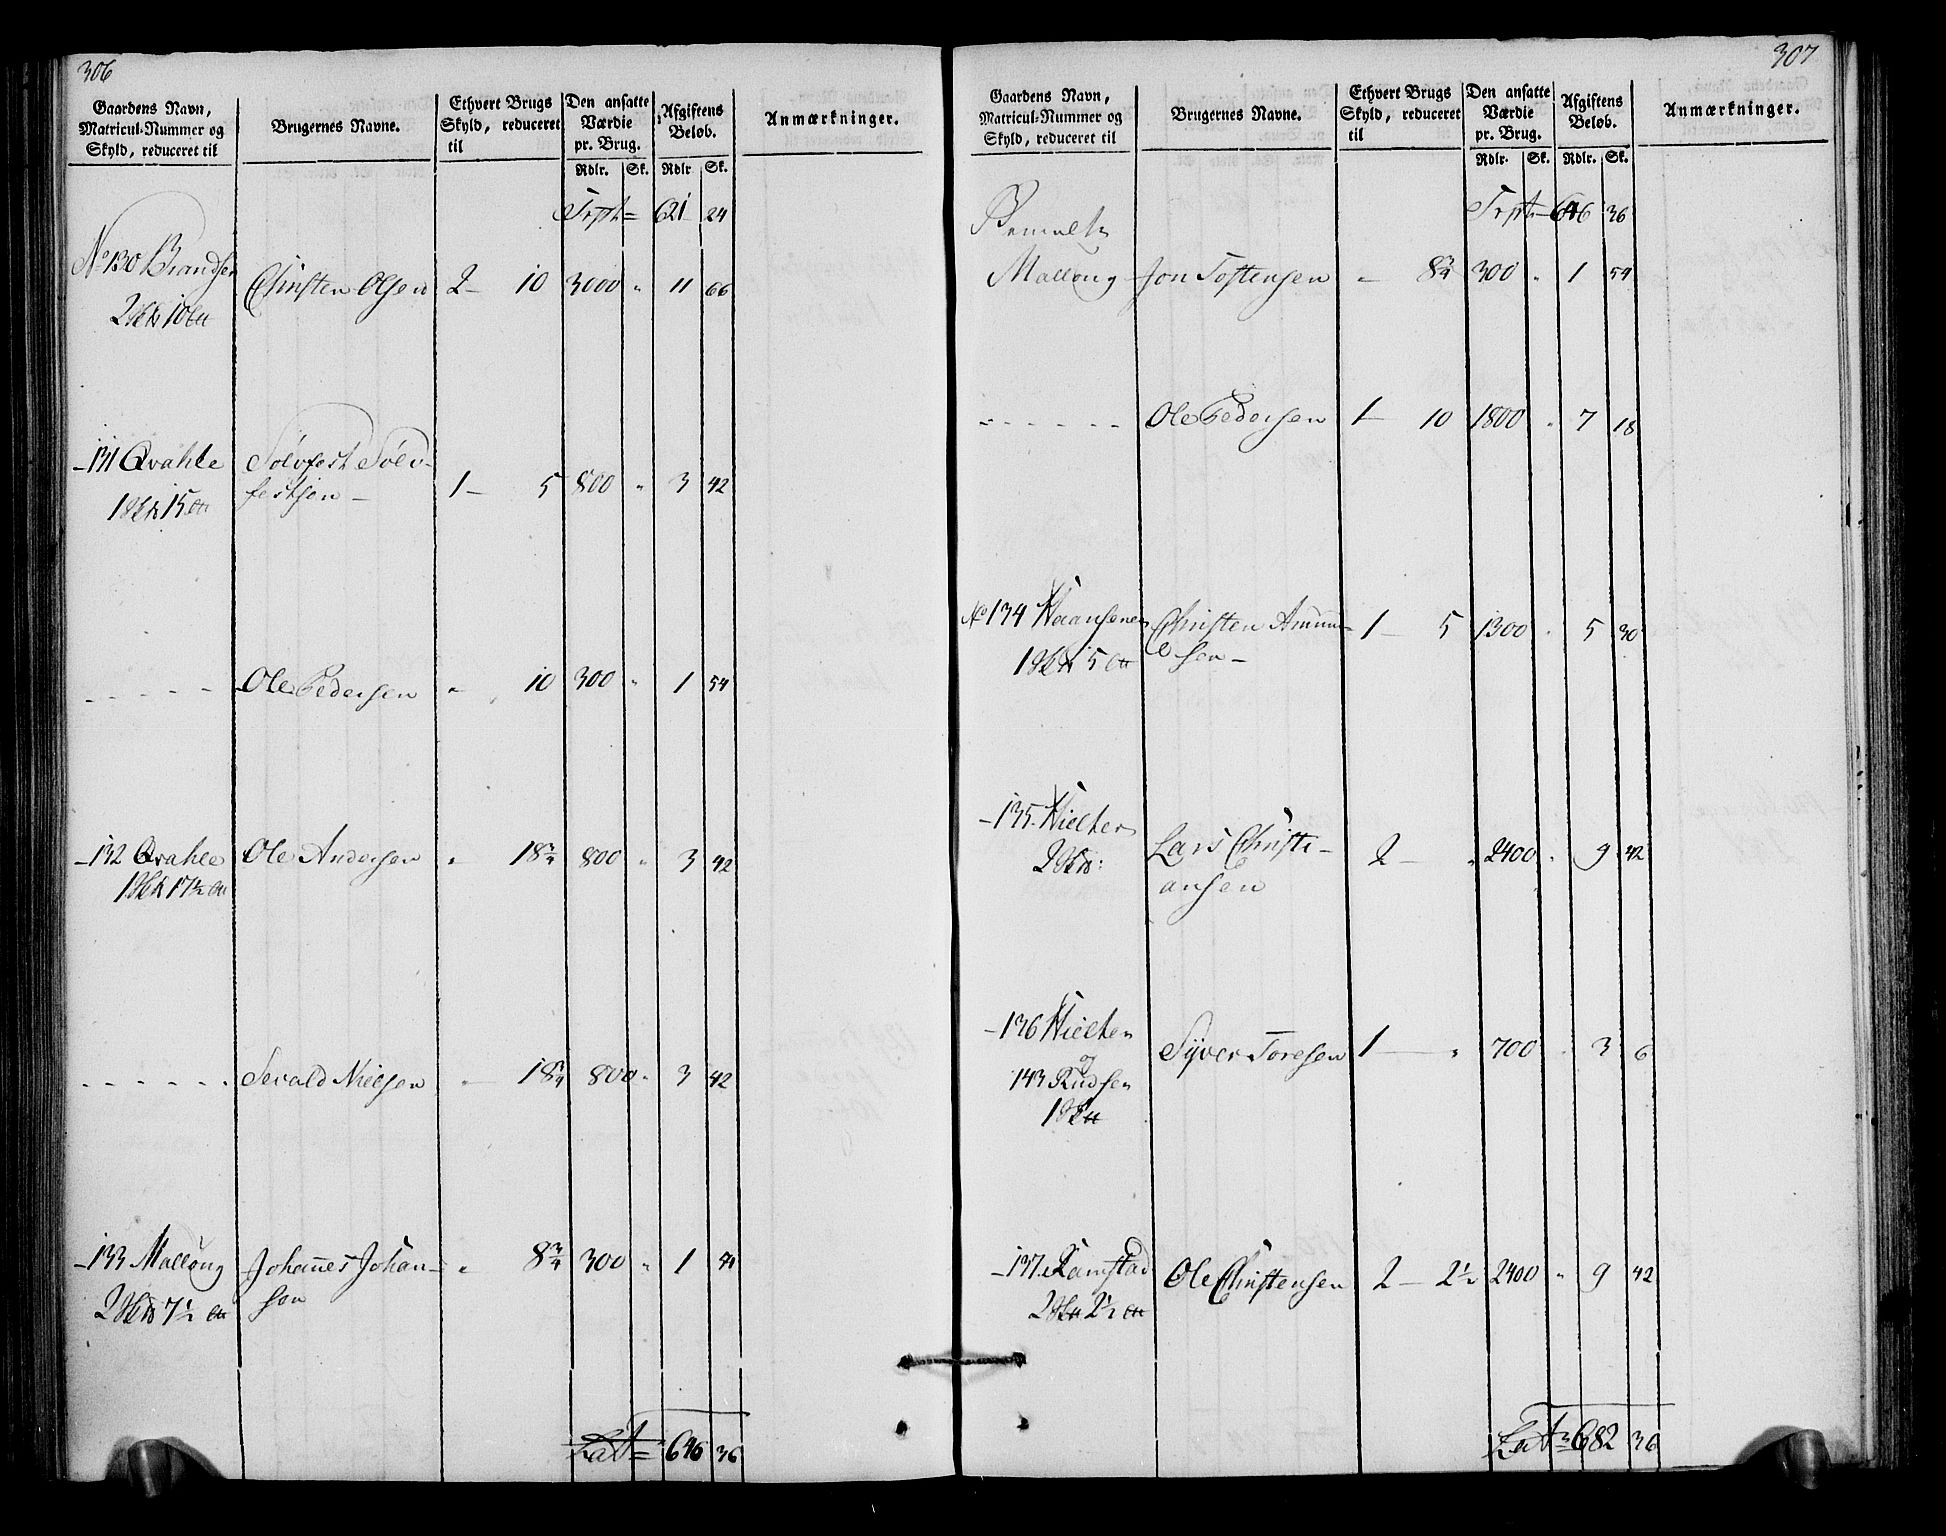 306
Gaardens Navn,
Matricul-Nummer og
Skyld, reduceret til
Brugernes Navne.
Ethvert Brugs
Skyld, reduceret
til
Den ansatte
Værdie
pr. Brug.
Rdlr. Sk.
Afgiftens
Beløb.
Rdlr Sk.
Anmærkninger.
Trpt = 621 24
No 130 Brandsen Christen Olsen 2 - 10 3000 " 11 66
-131 Qvahle Sølvfest Sølv-
festsen - 1 - 5 800 " 3 42
- - - - - Ole Pedersen " 10 300 " 1 54
-132 Qvahle Ole Andersen " 18 3/4 800 " 3 42
- - - - - - Sevald Nielsen " 18 3/4 800 " 3 42
-133 Mallong Johannes Johan-
sen " 8 3/4 300 " 1
Lat = 646 36
307
Gaardens Navn,
Matricul-Nummer og
Skyld, reduceret til
Brugernes Navne.
Ethvert Brugs
Skyld, reduceret
til
Den ansatte
Værdie
pr. Brug.
Rdlr. Sk.
Afgiftens
Beløb.
Rdlr. Sk.
Anmærkninger.
Trpt = 646 36
Mallong Jon Tostensen - 8 3/4 300 " 1 54
- - - - - - Ole Pedersen 1 - 10 1800 " 7 18
No 134 Christen Amun-
sen - 1 - 5 1300 " 5 30
-135 Lars Christi-
ansen 2 - " 2400 " 9 42
-136
og
143 Knudsen
Syver Toresen 1 - " 700 " 3 6
-137 Ramstad Ole Christensen 2 - 2 1/2 2400 " 9 42
Lat = 682 36